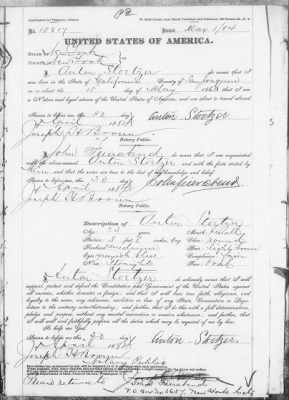 No. 10817 Issued May 1/84
UNITED STATES OF AMERICA.
STATE OF New York
COUNTY OF New York
I, Anton Stoetzer do swear that I
was born in the State of California County of San Joaquin
on or about the 18 day of May
a Native and loyal citizen of the United States of America, and am about to travel abroad.
Sworn to before me, this 30
day of April 1884 Anton Stoetzer
Joseph H Brown
Notary Public.
I, John Feuerabend do swear that I am acquainted
with the above named Anton Stoetzer and with the facts stated by
him and that the same are true to the best of my knowledge and belief.
Sworn to before me, this 30
day of April 1884 John Feuerabend
Joseph H Brown
Notary Public.
Description of Anton Stoetzer
Age: 23 years
Stature: 5 feet inches, Eng.
Forehead: medium
Eyes: grayish blue
Nose:
Mouth:
Chin: round
Hair: light brown
Complexion: fair
Face: oval
I, Anton Stoetzer do solemnly swear that I will
support, protect and defend the Constitution and Government of the United States against
all enemies, whether domestic or foreign; and that I will bear true faith, allegiance, and
loyalty to the same, any ordinance, resolution or law of any State, Convention or Legis-
lature to the contrary notwithstanding; and further, that I do this with a full determination,
pledge and purpose, without any mental reservation or evasion whatsoever; and further, that
I will well and faithfully perform all the duties which may be required of me by law.
So help me God.
Sworn to before me, this 30
day of April 1884 Anton Stoetzer
Joseph H Brown
Notary Public
Please return to John Feuerabend
P.O. Box No New York City